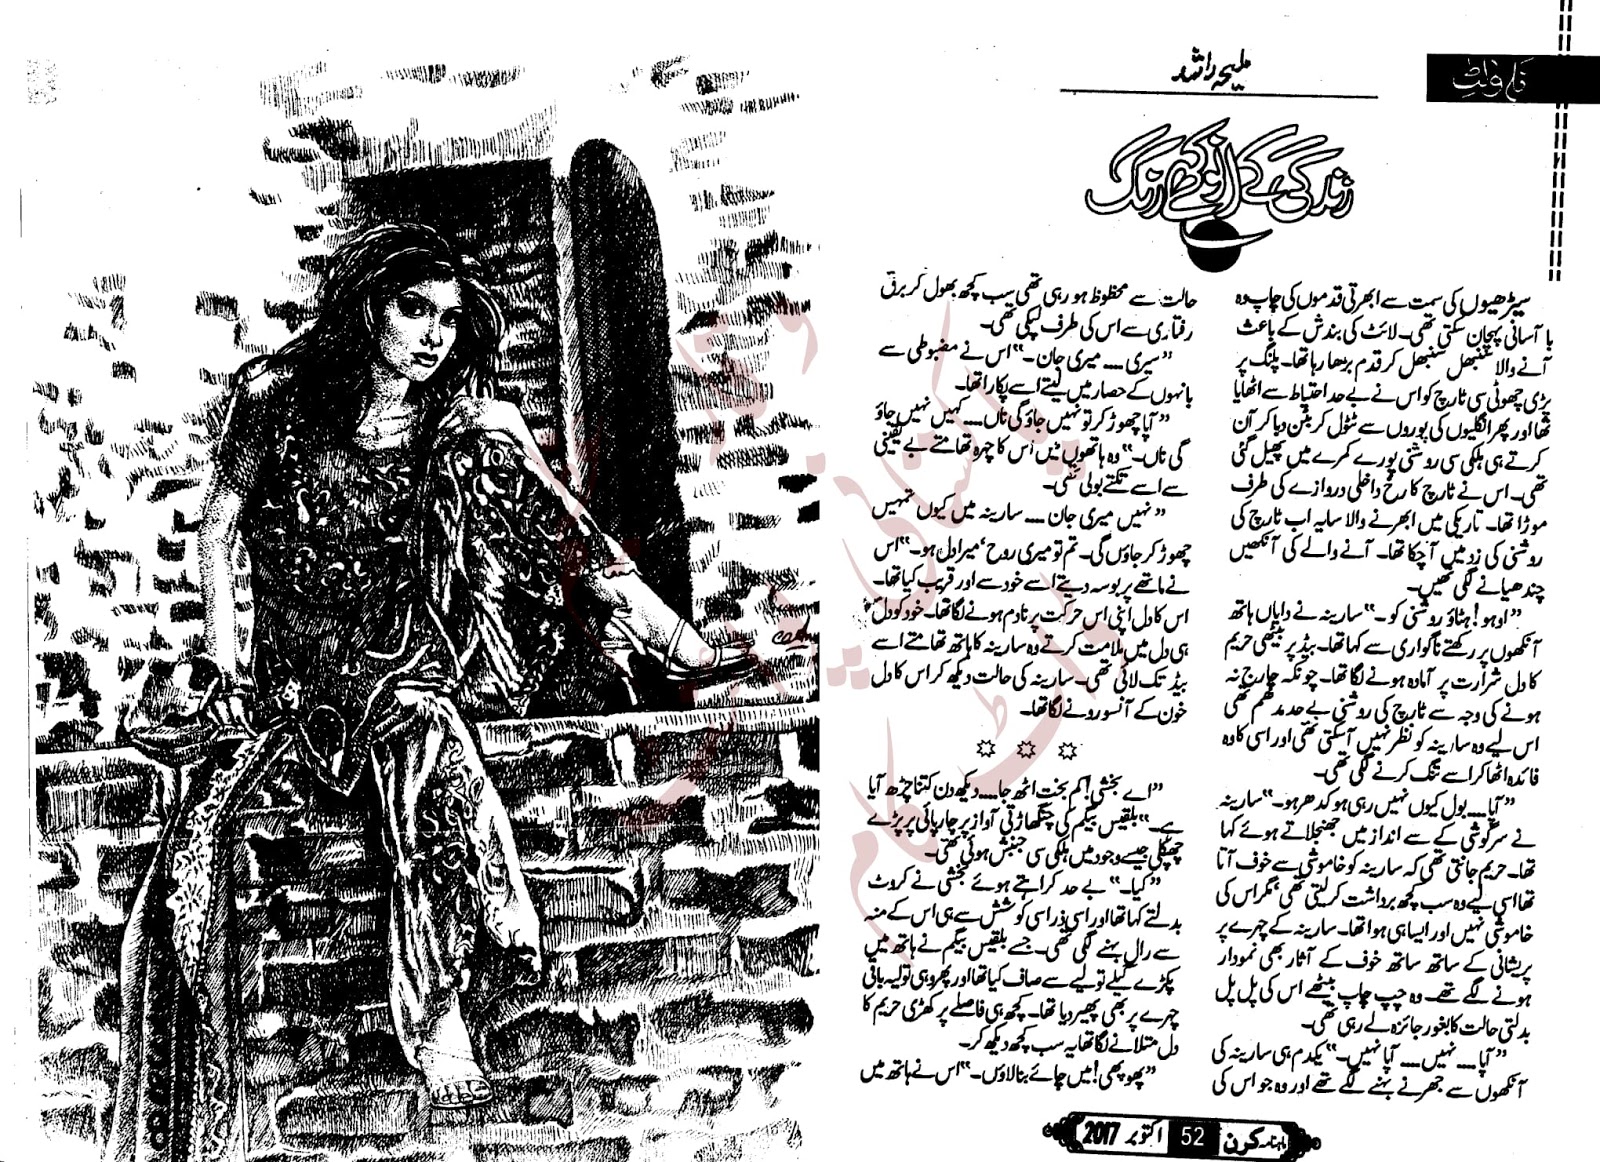 ناولٹ
ملیحہ راشد
زندگی کے انوکھے رنگ
سیڑھیوں کی سمت سے ابھرتی قدموں کی چاپ وہ
با آسانی پہچان سکتی تھی۔ لائٹ کی بندش کے باعث
آنے والا سنبھل سنبھل کر قدم بڑھا رہا تھا۔ پلنگ پر
پڑی چھوٹی سی ٹارچ کو اس نے بے حد احتیاط سے اٹھایا
تھا اور پھر انگلیوں کی پوروں سے ٹٹول کر بٹن دبا کر آن
کرتے ہی ہلکی سی روشنی پورے کمرے میں پھیل گئی
تھی۔ اس نے ٹارچ کا رخ داخلی دروازے کی طرف
موڑا تھا۔ تاریکی میں ابھرنے والا سایہ اب ٹارچ کی
روشنی کی زد میں آچکا تھا۔ آنے والے کی آنکھیں
چندھیانے لگی تھیں۔
”اوہو! ہٹاؤ روشنی کو۔“ سارینہ نے دایاں ہاتھ
آنکھوں پر رکھتے ناگواری سے کہا تھا۔ بیڈ پر بیٹھی حریم
کا دل شرارت پر آمادہ ہونے لگا تھا۔ چونکہ چارج نہ
ہونے کی وجہ سے ٹارچ کی روشنی بے حد مدھم تھی
اس لیے وہ سارینہ کو نظر نہیں آسکتی تھی اور اسی کا وہ
فائدہ اٹھا کر اسے تنگ کرنے لگی تھی۔
”آپا.... بول کیوں نہیں رہی ہو کدھر ہو۔“ سارینہ
نے سرگوشی کے سے انداز میں جھنجلاتے ہوئے کہا
تھا۔ حریم جانتی تھی کہ سارینہ کو خاموشی سے خوف آتا
تھا اسی لیے وہ سب کچھ برداشت کر لیتی تھی مگر اس کی
خاموشی نہیں اور ایسا ہی ہوا تھا۔ سارینہ کے چہرے پر
پریشانی کے ساتھ ساتھ خوف کے آثار بھی نمودار
ہونے لگے تھے۔ وہ چپ چاپ بیٹھے اس کی پل پل
بدلتی حالت کا بغور جائزہ لے رہی تھی۔
”آپا.... نہیں.... آپا نہیں۔“ یکدم ہی سارینہ کی
آنکھوں سے جھرنے بہنے لگے تھے اور وہ جو اس کی
حالت سے محظوظ ہو رہی تھی سب کچھ بھول کر برق
رفتاری سے اس کی طرف لپکی تھی۔
”سیری.... میری جان۔“ اس نے مضبوطی سے
بانہوں کے حصار میں لیتے اسے پکارا تھا۔
”آپا چھوڑ کر تو نہیں جاؤ گی ناں.... کہیں نہیں جاؤ
گی ناں۔“ وہ ہاتھوں میں اس کا چہرہ تھامتے بے یقینی
سے اسے تکتے بولی تھی۔
”نہیں میری جان.... سارینہ میں کیوں تمہیں
چھوڑ کر جاؤں گی۔ تم تو میری روح‘ میرا دل ہو۔“ اس
نے ماتھے پر بوسہ دیتے اسے خود سے اور قریب کیا تھا۔
اس کا دل اپنی اس حرکت پر نادم ہونے لگا تھا۔ خود کو دل
ہی دل میں ملامت کرتے وہ سارینہ کا ہاتھ تھامتے اسے
بیڈ تک لائی تھی۔ سارینہ کی حالت دیکھ کر اس کا دل
خون کے آنسو رونے لگا تھا۔
”اے بخشی! کم بخت اٹھ جا.... دیکھ دن کتنا چڑھ آیا
ہے۔“ بلقیس بیگم کی چنگھاڑتی آواز پر چارپائی پر پڑے
چھپکلی جیسے وجود میں ہلکی سی جنبش ہوئی تھی۔
”کیا۔“ بے حد کراہتے ہوئے بخشی نے کروٹ
بدلتے کہا تھا اور اسی ذرا سی کوشش سے ہی اس کے منہ
سے رال بہنے لگی تھی۔ جسے بلقیس بیگم نے ہاتھ میں
پکڑے گیلے تولیے سے صاف کیا تھا اور پھر وہی تولیہ باقی
چہرے پر بھی پھیر دیا تھا۔ کچھ ہی فاصلے پر کھڑی حریم کا
دل متلانے لگا تھا یہ سب کچھ دیکھ کر۔
”پھوپھی! میں چائے بنا لاؤں۔“ اس نے ہاتھ میں
ماہنامہ کرن 52 اکتوبر 2017